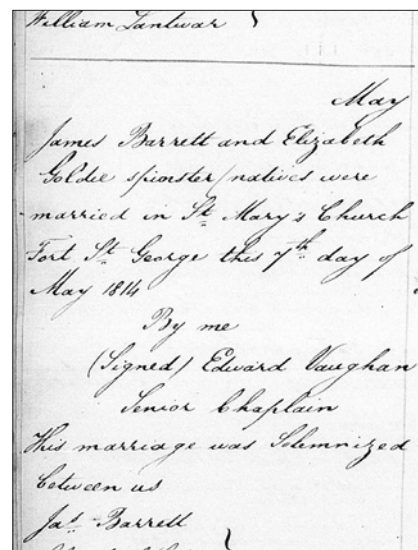 William Tantwar }
May
James Barrett and Elizabeth
Goldie spinster / natives were
married in St Mary's Church
Fort St George this 7th day of
May 1814
By me
(Signed) Edward Vaughan
Senior Chaplain
This marriage was Solemnized
between us
Jas Barrett